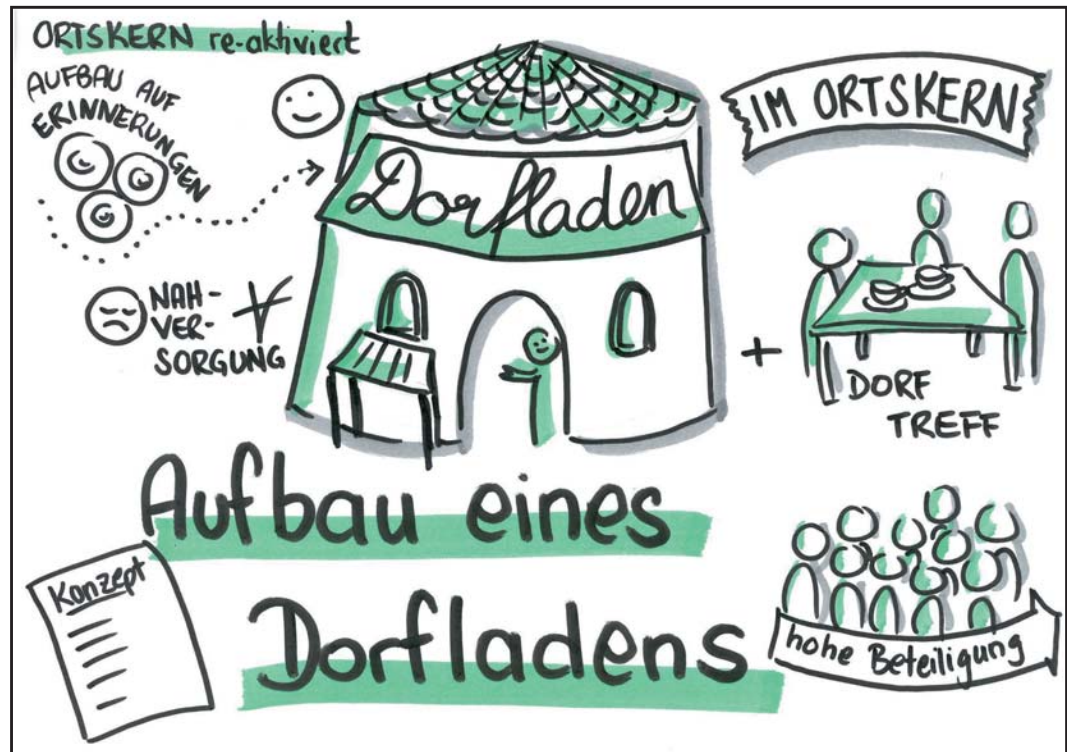 ORTSKERN re-aktiviert
AUFBAU AUF
ERINNERUNGEN
IM ORTSKERN
Dorfladen
NAH-
VER-
SORGUNG
+
DORF
TREFF
Aufbau eines
Dorfladens
Konzept
hohe Beteiligung